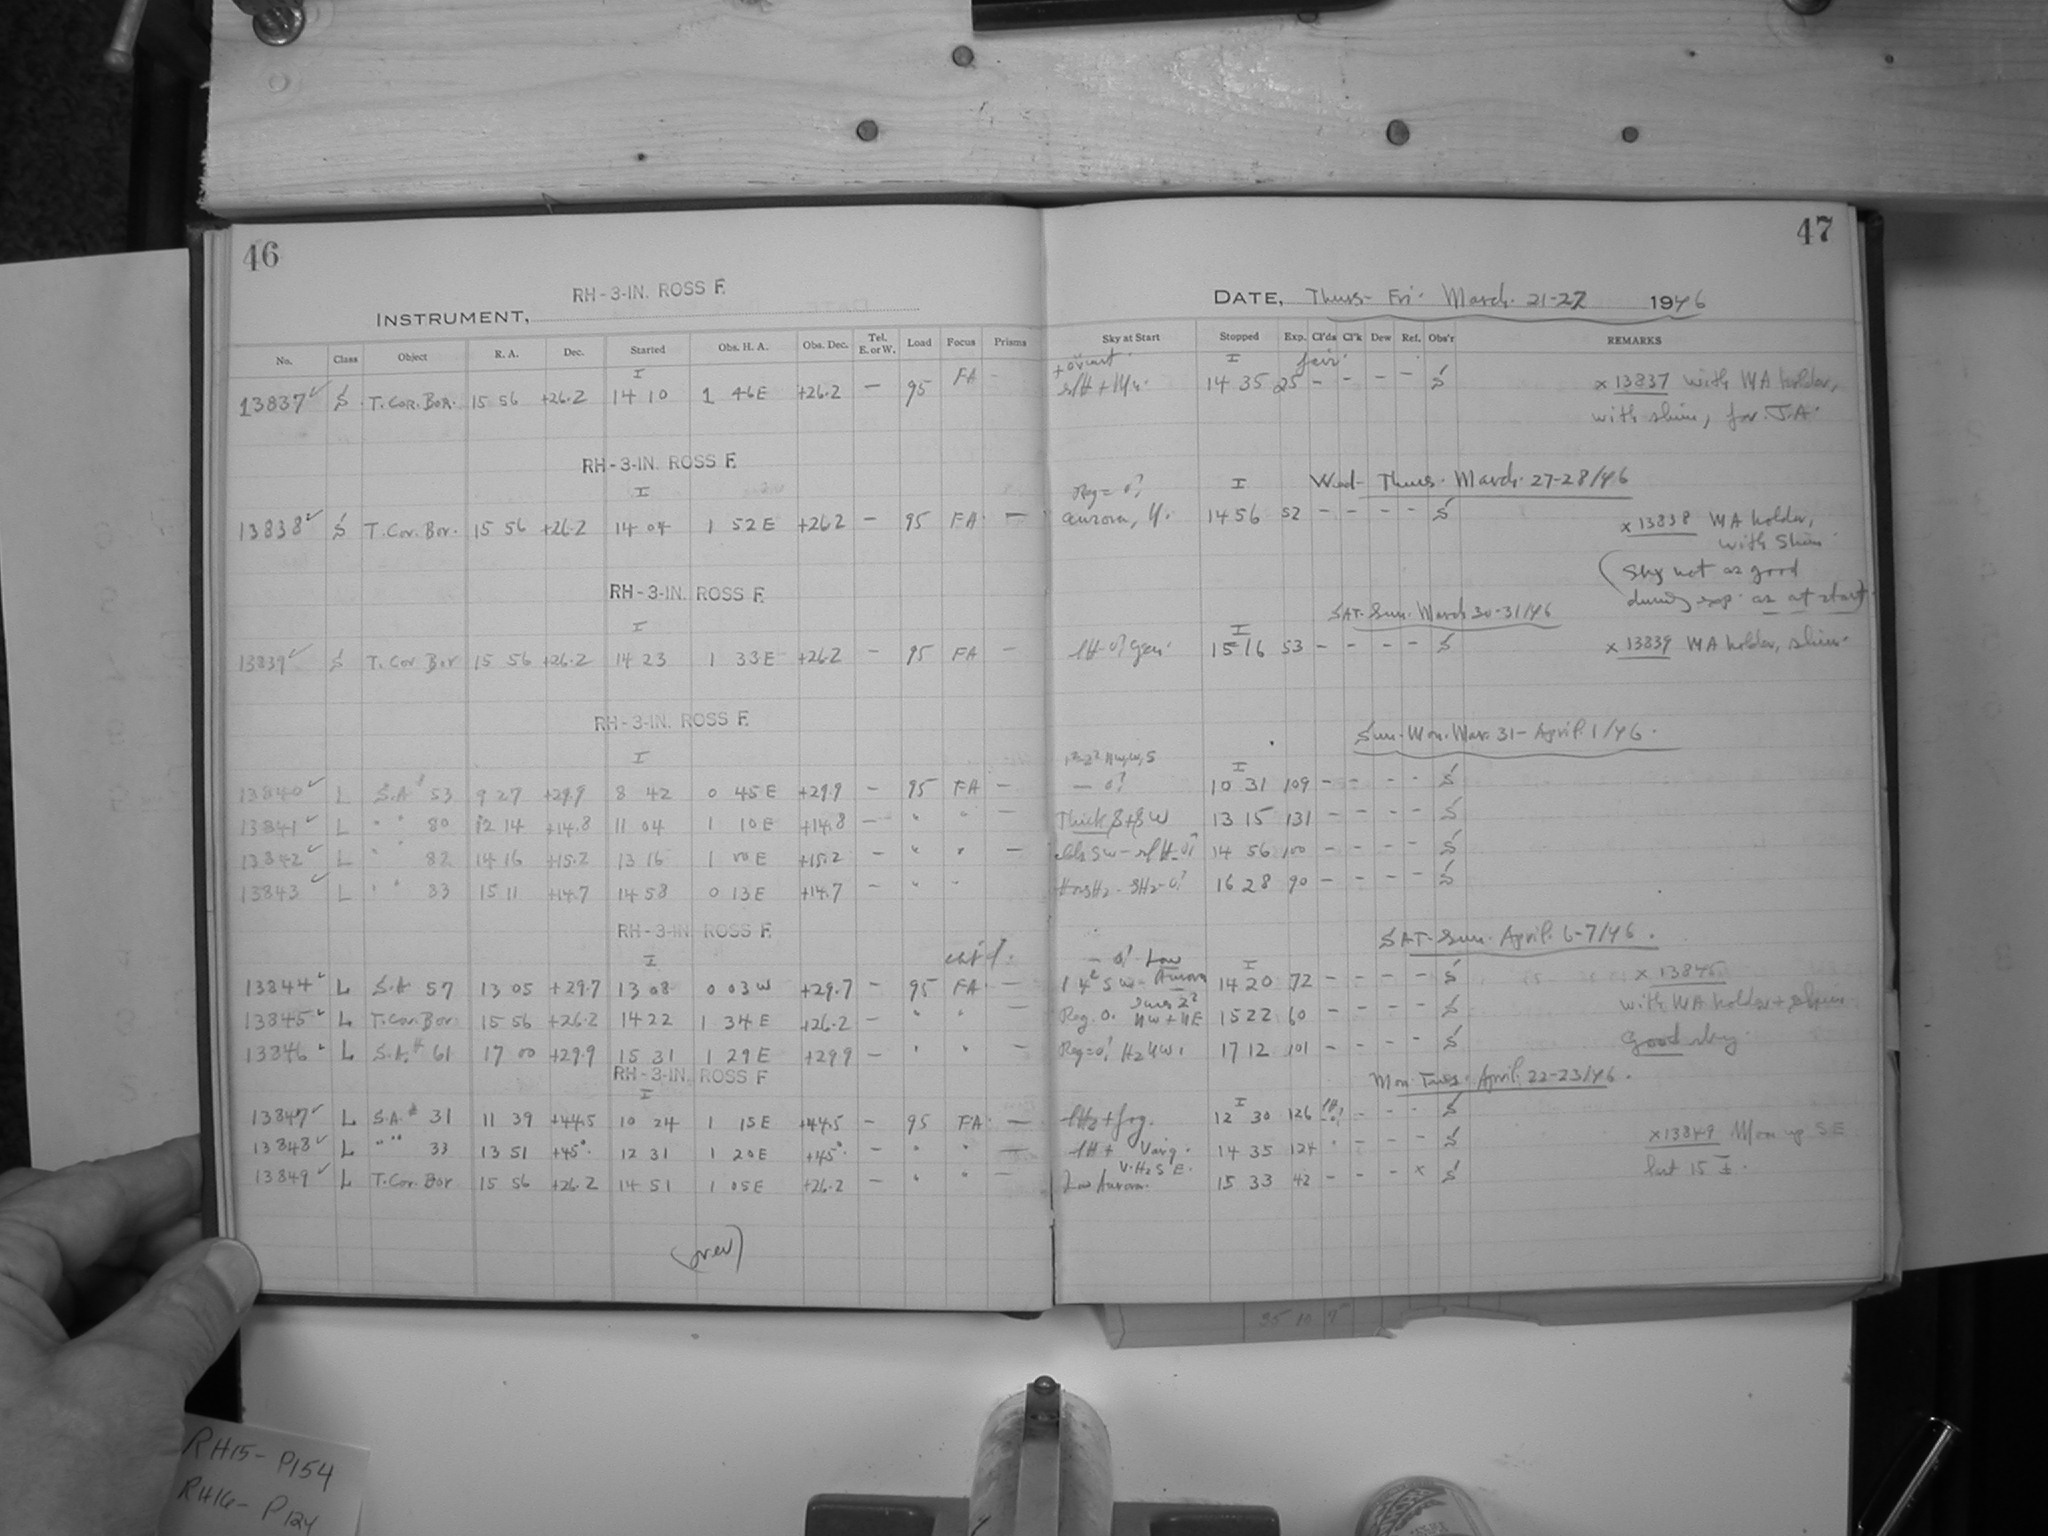 46
RH-3-IN. ROSS F.
INSTRUMENT,
No. Class Object R. A. Dec. Started Obs. H. A. Obs. Dec. Tel. E. or W. Load Focus Prisms
I
13837 ✓ S T. COR. BOR. 15 56 +26.2 14 10 1 46E +26.2 — 95 FA —
RH-3-IN. ROSS F.
I
13838 ✓ S T. Cor. Bor. 15 56 +26.2 14 04 1 52 E +26.2 — 95 FA —
RH-3-IN. ROSS F.
I
13839 ✓ S T. Cor Bor 15 56 +26.2 14 23 1 33E +26.2 — 95 FA —
RH-3-IN. ROSS F.
I
13840 ✓ L S.A # 53 9 27 +29.9 8 42 0 45E +29.9 — 95 FA —
13841 ✓ L " " 80 12 14 +14.8 11 04 1 10E +14.8 — " " —
13842 ✓ L " " 82 14 16 +15.2 13 16 1 00E +15.2 — " " —
13843 ✓ L " " 83 15 11 +14.7 14 58 0 13E +14.7 — " "
RH-3-IN. ROSS F.
I
13844 ✓ L S.A 57 13 05 +29.7 13 08 0 03W +29.7 — 95 FA —
13845 ✓ L T. Cor. Bor. 15 56 +26.2 14 22 1 34 E +26.2 — " " —
13846 ✓ L S.A. # 61 17 00 +29.9 15 31 1 29E +29.9 — " " —
RH-3-IN. ROSS F.
I
13847 ✓ L S.A. # 31 11 39 +44.5 10 24 1 15E +44.5 — 95 FA —
13848 ✓ L " " 33 13 51 +45° 12 31 1 20E +45° — " " —
13849 ✓ L T. Cor. Bor 15 56 +26.2 14 51 1 05E +26.2 — " " —
(over)
47
DATE, Thurs - Fri. March. 21-22 1946
Sky at Start Stopped Exp. Cl'ds Cl'k Dew Ref. Obs'r REMARKS
I fair
14 35 25 — — — — S x 13837 with MA holder,
with shim, for J.A.
I Wed - Thurs. March. 27-28/46
Aurora, 14 56 52 — — — — S x 13838 MA holder,
with shim
(Sky not as good
during exp. as at start)
SAT-Sun. March 30-31/46
I
15 16 53 — — — — S x 13839 MA holder, shim.
Sun. Mon. Mar. 31 - April. 1/46.
I
10 31 109 — — — — S
Thick S+SW 13 15 131 — — — — S
14 56 100 — — — — S
16 28 90 — — — — S
SAT-Sun. April. 6-7/46.
Low I
SW - Aurora 14 20 72 — — — — S x 13845
NW + NE 15 22 60 — — — — S with MA holder + shim
17 12 101 — — — — S Good sky
Mon. Tues. April. 22-23/46.
I
+ fog. 12 30 126 — — — S
14 35 124 — — — S x 13849 Moon up SE
Low Aurora. 15 33 42 — — — x S last 15 I.
RH15 - P154
RH16 - P124